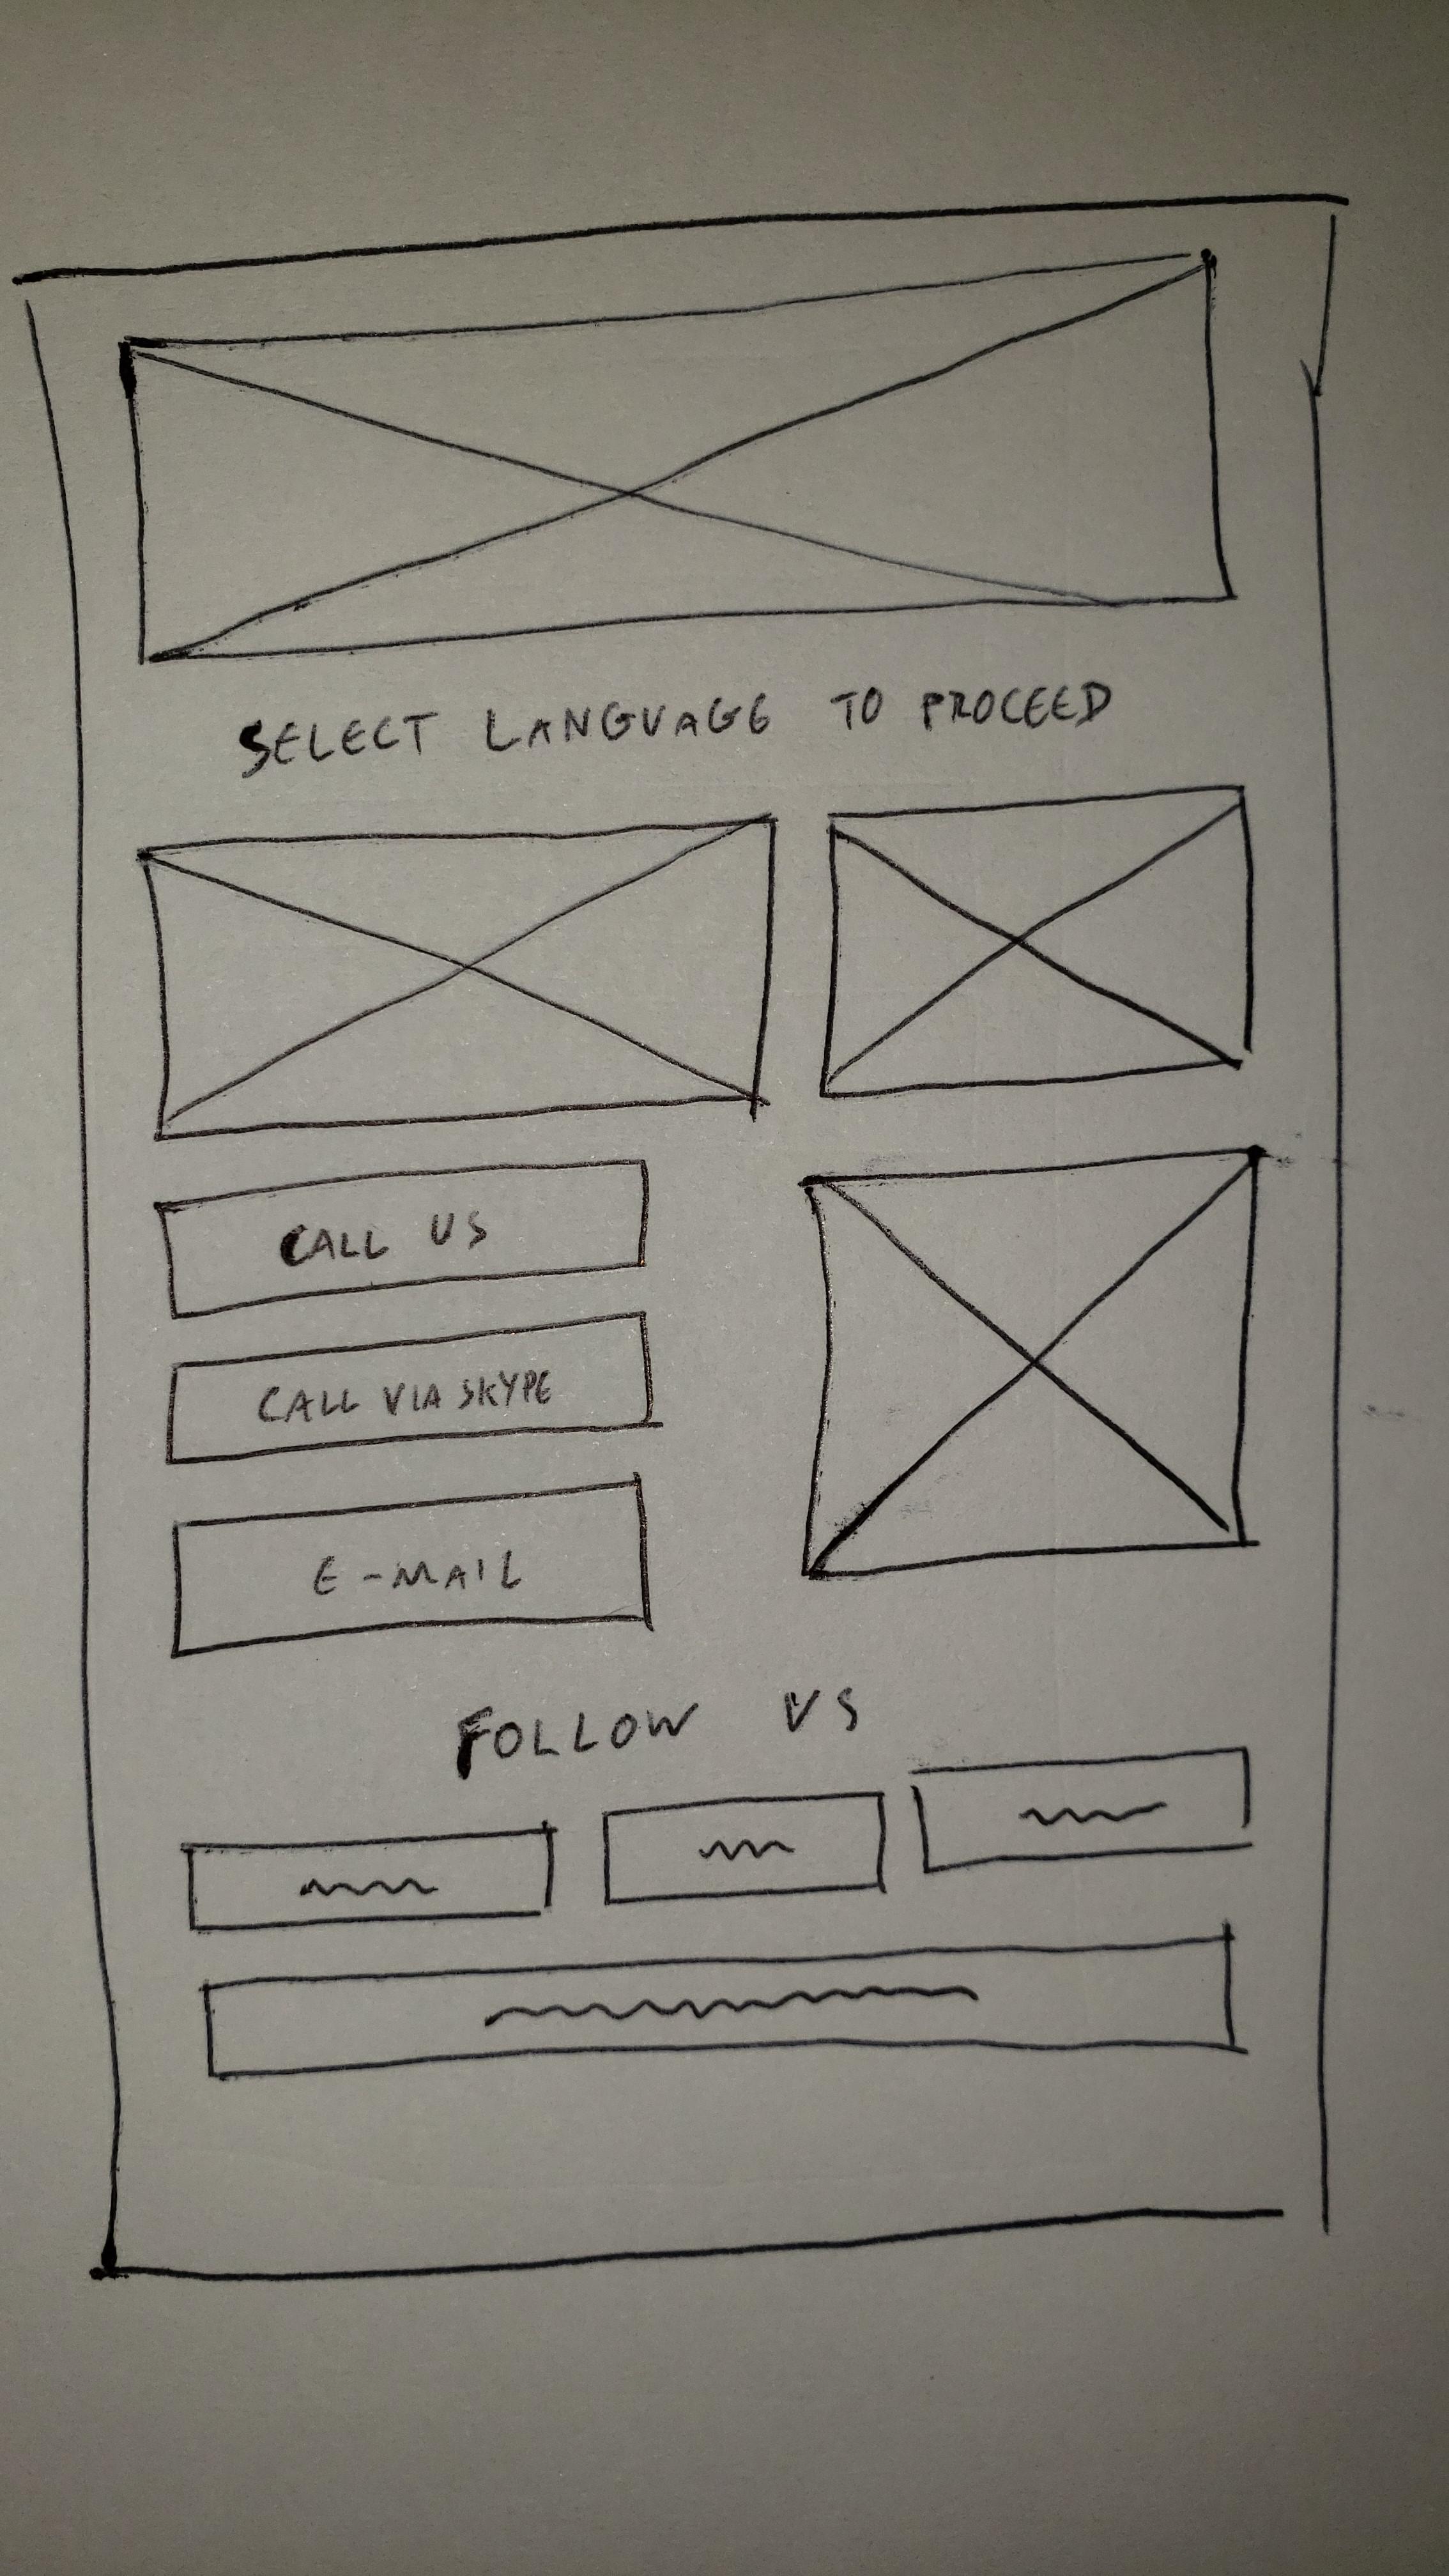 SELECT LANGUAGE TO PROCEED
CALL US
CALL VIA SKYPE
E-MAIL
FOLLOW US